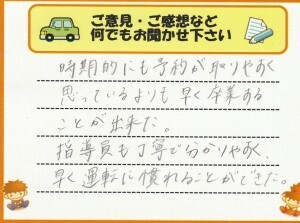 ご意見・ご感想など
何でもお聞かせ下さい
時期的にも予約が取りやすく
思っているよりも早く卒業する
ことが出来た。
指導員も丁寧で分かりやすく、
早く運転に慣れることができた。